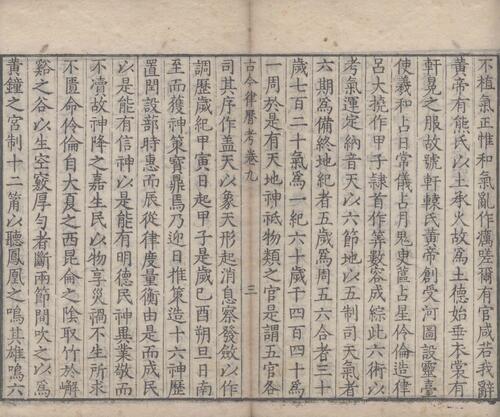 不植氣正惟和氣亂作癘嗟爾有官咸若我辭
黃帝有熊氏以土承火故爲土德始垂衣裳有
軒冕之服故號軒轅氏黃帝創受河圖設靈臺
使羲和占日常儀占月鬼臾蓲占星伶倫造律
呂大撓作甲子隸首作筭數容成綜此六術以
考氣運定納音天以六節地以五制司天氣者
六期爲備終地紀者五歲爲周五六合者三十
歲七百二十氣爲一紀六十歲千四百四十爲
一周於是有天地神祇物類之官是謂五官各
古今律曆考卷九
三
司其序作蓋天以象天形起消息察發斂以作
調歷歲紀甲寅日起甲子是歲己酉朔旦日南
至而獲神策寶鼎焉乃迎日推策造十六神歷
置閏設部時惠而辰從律度量衡由是而成民
以是能有信神以是能有明德民神異業敬而
不瀆故神降之嘉生民以物享災禍不生所求
不匱命伶倫自大夏之西昆侖之陰取竹於嶰
谿之谷以生空竅厚勻者斷兩節間吹之以爲
黃鐘之宮制十二筩以聽鳳凰之鳴其雄鳴六